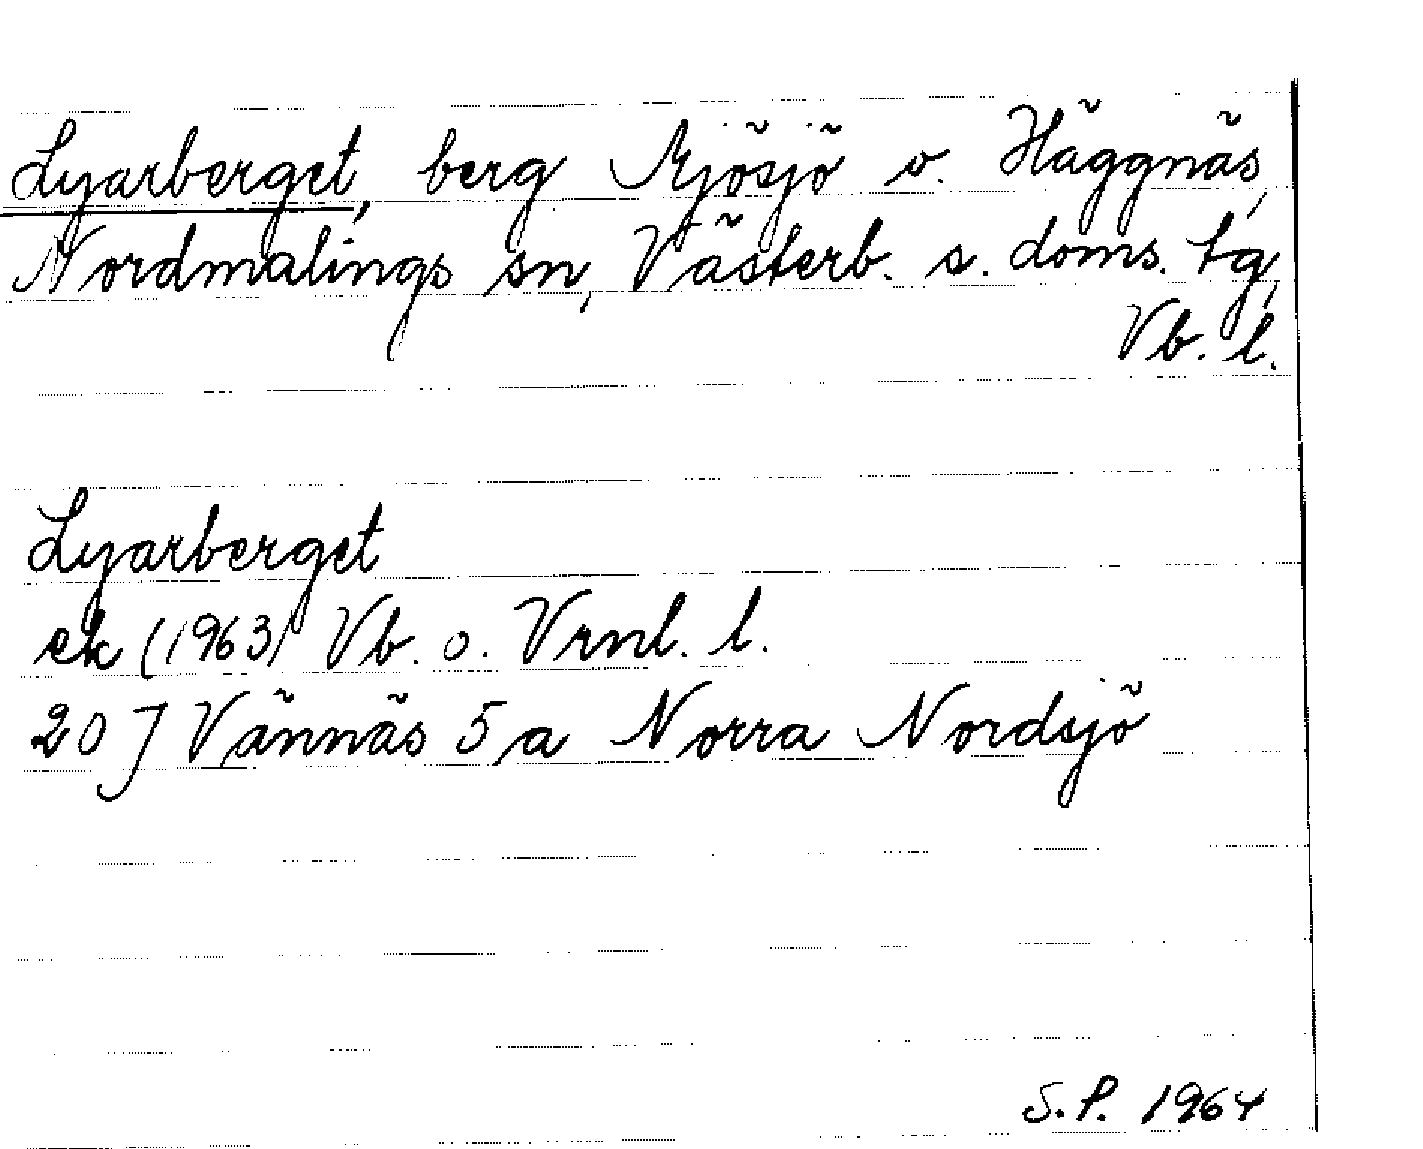 Lyarberget, berg Mjösjö o. Häggnäs,
Nordmalings sn, Västerb. s. doms. tg,
Vb. l.
Lyarberget
ek (1963) Vb. o. Vrnl. l.
20 J Vännäs 5 a Norra Nordsjö
S.P. 1964